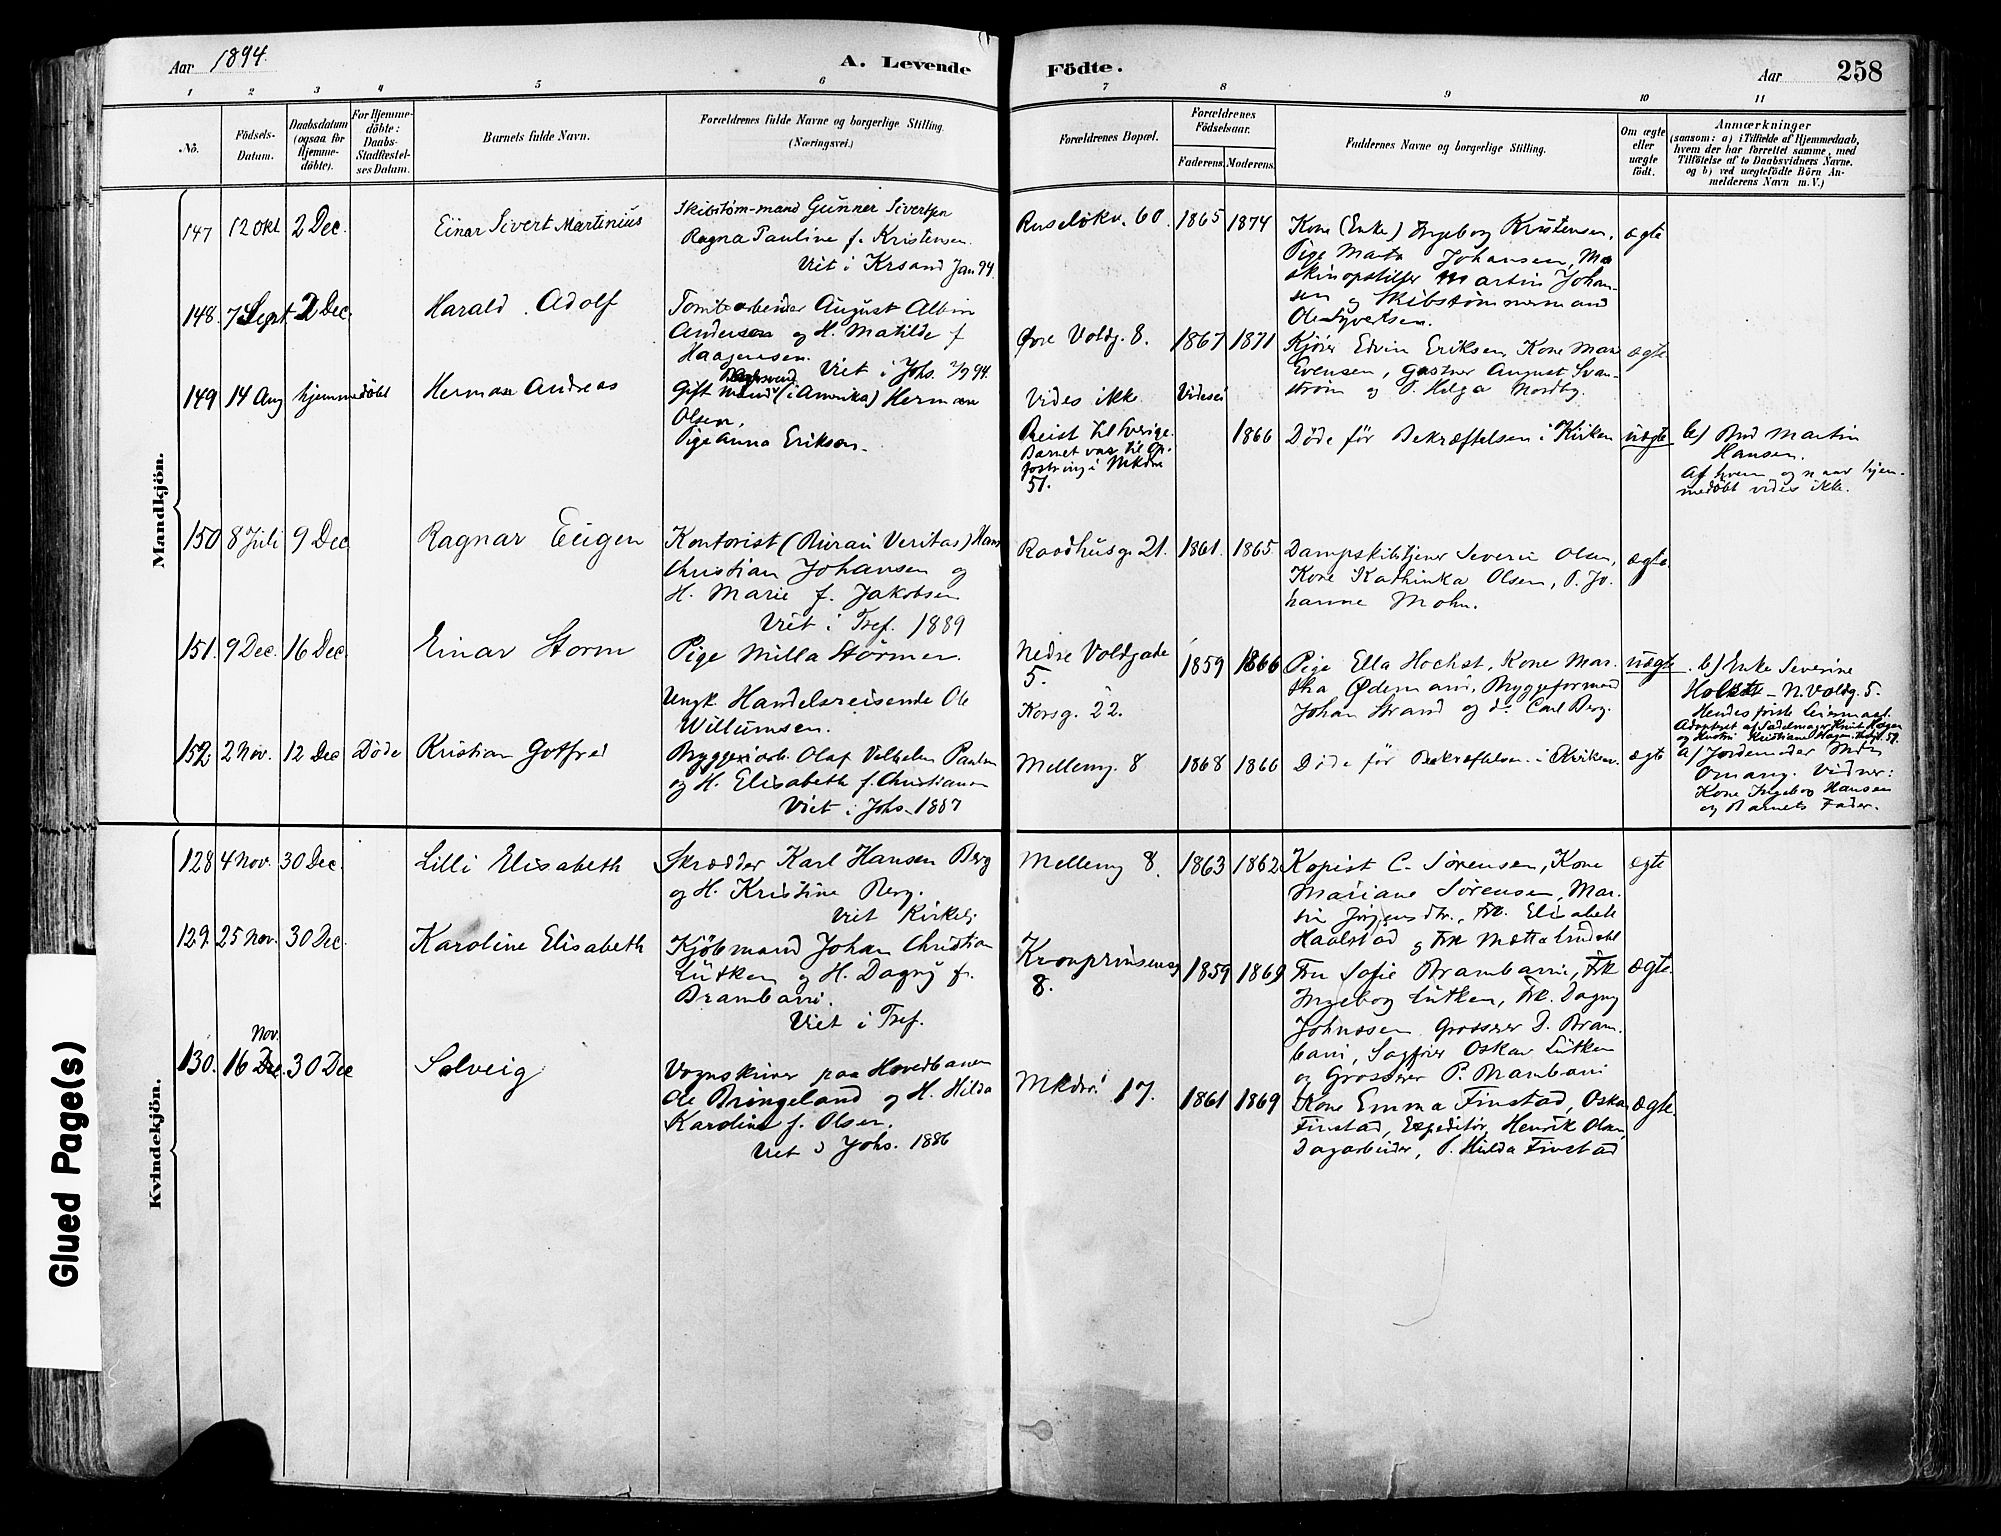 Aar 1894.
A. Levende
Födte.
Aar 258
1 2 3 4 5 6 7 8 9 10 11
No.
Födsels-
Datum.
Daabsdatum
(ogsaa for
Hjemme-
döbte).
For Hjemme-
döbte:
Daabs-
Stadfæstel-
ses Datum.
Barnets fulde Navn.
Forældrenes fulde Navne og borgerlige Stilling.
(Næringsvei.)
Forældrenes Bopæl.
Forældrenes
Födselsaar.
Faderens. Moderens.
Faddernes Navne og borgerlige Stilling.
Om ægte
eller
uægte
födt.
Anmærkninger
(saasom: a) i Tilfælde af Hjemmedaab,
hvem der har forrettet samme, med
Tilföielse af to Daabsvidners Navne.
og b) ved uægtefödte Börn An-
melderens Navn m. V.)
Mandkjön.
147 12 Okt 2 Dec. Einar Sivert Martinius
Skibstøm-mand Gunner Sivertsen
Ragna Pauline f. Kristensen.
Viet i Krsand Jan 94.
Ruseløkv. 60. 1865 1874
Kone (Enke) Ingeborg Kristensen,
Pige Marta Johansen, Ma-
skinopstiller Martin Johan-
sen og Skibstømmermand
Ole Syvertsen.
ægte
148. 7 Sept. 2 Dec. Harald Adolf
Tomtearbeider August Albin
Andersen og H. Matilde f
Haagensen.
Viet i Johs. 94.
Øvre Voldg. 8. 1867 1871
Kjører Edvin Eriksen, Kone
Evensen, Gartner August Svan-
strøm og P. Helga Nordby.
ægte
149 14 Aug hjemmedøbt Herman Andreas
Gift Mand (i Amerika) Herman
Olsen,
Pige Anna Erikson.
Vides ikke Vides ei
Reist til Sverige.
Barnet var til Op-
fostring i Mkdvn
51.
1866 Døde før Bekræftelsen i Kirken uægte
b) Bud Martin
Hansen.
Af hvem og naar hjem-
medøbt vides ikke.
150 8 Juli 9 Dec Ragnar Eugen
Kontorist (Bureau Veritas) Hans
Christian Johansen og
H. Marie f. Jakobsen
Viet i Tref. 1889
Raadhusg. 21. 1861. 1865.
Dampskibstjener Severin Olsen,
Kone Kathinka Olsen, P. Jo-
hanne Mohn.
ægte
151. 9 Dec. 16 Dec. Einar Storm
Pige Milla Størmer.
Ungk. Handelsreisende Ole
Willumsen.
Nedre Voldgade
5.
Korsg. 22.
1859 1866
Pige Ella Hochst, Kone Mar-
tha Ødemann, Byggeformand
Johan Strand og do Carl Berg.
uægte
b) Enke Severine
Holst - N. Voldg. 5.
Hendes første Leiermaal.
Adopteret af Sadelmager Knut Hagen
og Hustru Kristiane Hagen
152. 2 Nov. 12 Dec Døde Kristian Gotfred
Bryggeriarb. Olaf Vilhelm Paulsen
og H. Elisabeth f. Christiansen
Viet i Johs. 1887
Mellemg. 8 1868 1866 Døde før Bekræftelsen i Kirken. ægte
a) Jordemoder
Omang. Vidner:
Kone Ingeborg Hansen
og Barnets Fader.
Kvindekjön.
128 4 Nov. 30 Dec. Lilli Elisabeth
Skrædder Karl Hansen Berg
og H. Kristine Berg.
Viet Kirkelig
Mellemg 8. 1863 1862
Kopist C. Sørensen, Kone
Mariane Sørensen, Mar-
tin Jørgensdtr., Frk. Elisabeth
Haalstad og Frk Mætta Lindahl
ægte
129. 25 Nov. 30 Dec. Karoline Elisabeth
Kjøbmand Johan Christian
Lütken og H. Dagny f.
Brambani.
Viet i Tref.
Kronprinsensg
8.
1859 1869
Fru Sofie Brambani, Frk
Ingeborg Lütken, Frk. Dagny
Johnæssen. Grosserer D. Bram-
bani, Sagfører Oskar Lütken
og Grosserer P. Brambani
ægte.
130. 16 Nov. Dec. 30 Dec Solveig
Vognskriver paa Hovedbanen
Ole Bringeland og H. Hilda
Karoline f. Olsen.
Viet i Johs. 1886
Mkdvn 17. 1861 1869
Kone Emma Finstad, Oskar
Finstad, Expeditør, Henrik Olsen,
Dagarbeider, P. Hilda Finstad
ægte
Glued Page(s)